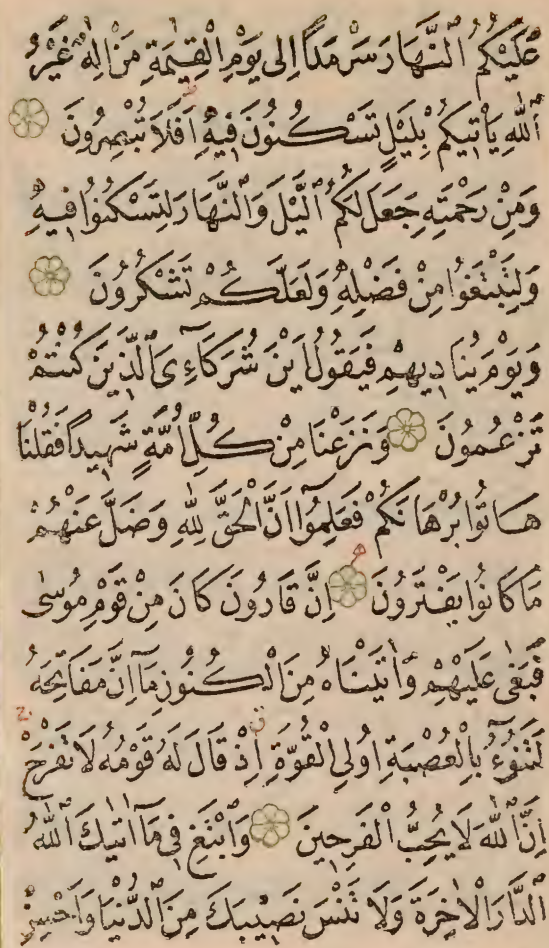 عَلَيْكُمُ النَّهَارَ سَرْمَدًا اِلٰى يَوْمِ الْقِيٰمَةِ مَنْ اِلٰهٌ غَيْرُ
اللّٰهِ يَأْتِيكُمْ بِلَيْلٍ تَسْكُنُونَ فِيهِ اَفَلَا تُبْصِرُونَ
وَمِنْ رَحْمَتِهِ جَعَلَ لَكُمُ الَّيْلَ وَالنَّهَارَ لِتَسْكُنُوا فِيهِ
وَلِتَبْتَغُوا مِنْ فَضْلِهِ وَلَعَلَّكُمْ تَشْكُرُونَ
وَيَوْمَ يُنَادِيهِمْ فَيَقُولُ اَيْنَ شُرَكَاءِىَ الَّذِينَ كُنْتُمْ
تَزْعُمُونَ وَنَزَعْنَا مِنْ كُلِّ اُمَّةٍ شَهِيدًا فَقُلْنَا
هَاتُوا بُرْهَانَكُمْ فَعَلِمُوا اَنَّ الْحَقَّ لِلّٰهِ وَضَلَّ عَنْهُمْ
مَا كَانُوا يَفْتَرُونَ اِنَّ قَارُونَ كَانَ مِنْ قَوْمِ مُوسٰى
فَبَغٰى عَلَيْهِمْ وَاٰتَيْنَاهُ مِنَ الْكُنُوزِ مَا اِنَّ مَفَاتِحَهُ
لَتَنُوءُ بِالْعُصْبَةِ اُولِى الْقُوَّةِ اِذْ قَالَ لَهُ قَوْمُهُ لَا تَفْرَحْ
اِنَّ اللّٰهَ لَا يُحِبُّ الْفَرِحِينَ وَابْتَغِ فِى مَا اٰتٰيكَ اللّٰهُ
الدَّارَ الْاٰخِرَةَ وَلَا تَنْسَ نَصِيبَكَ مِنَ الدُّنْيَا وَاَحْسِنْ